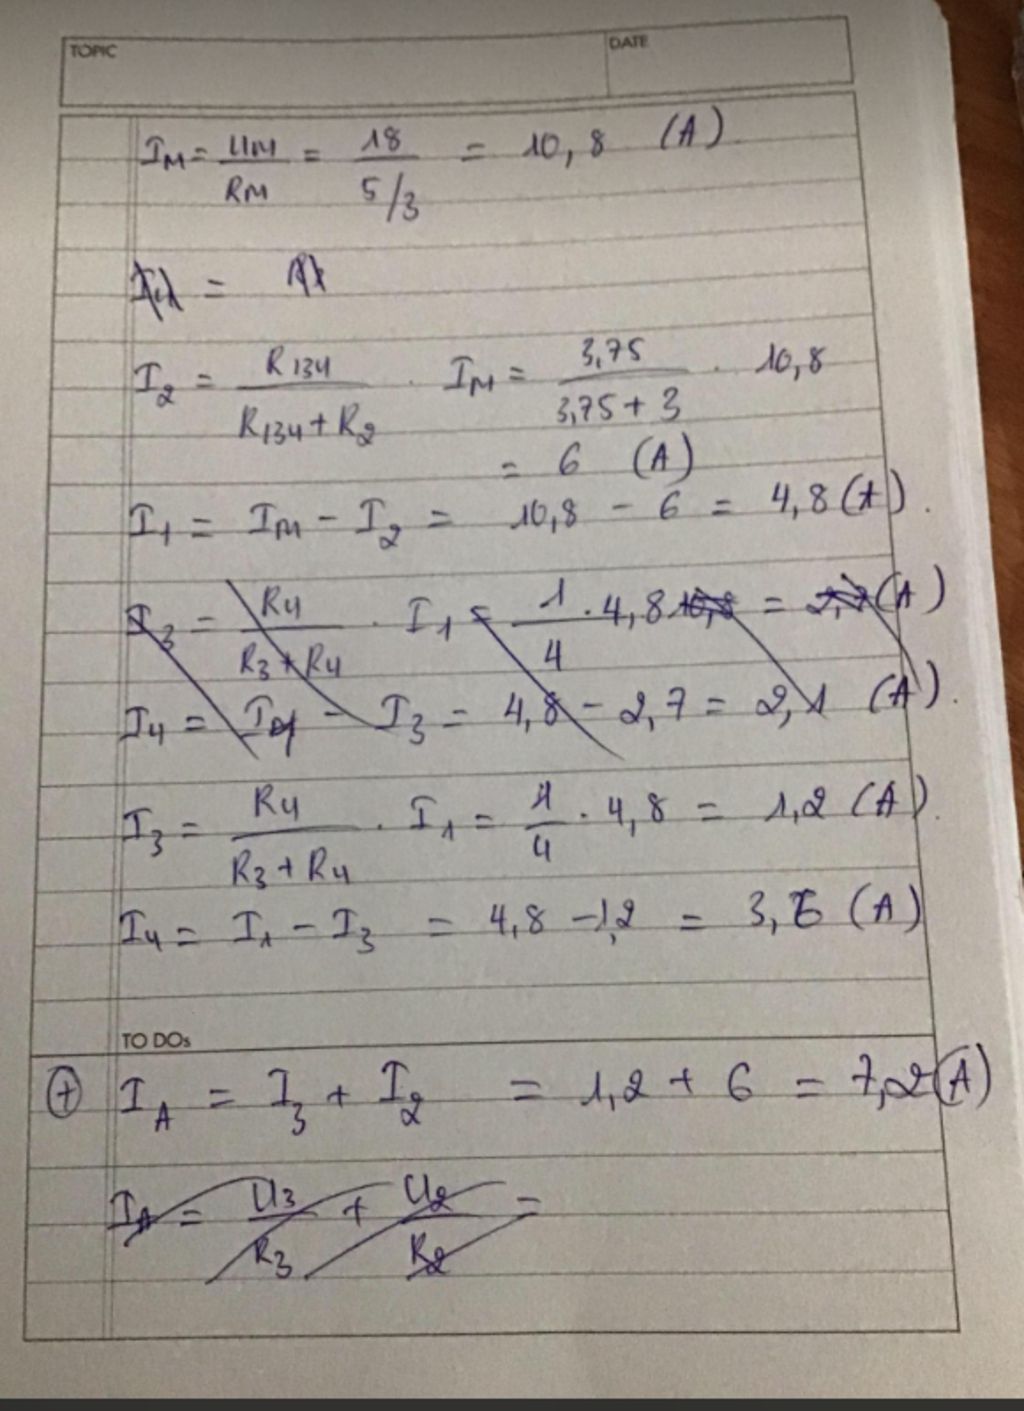 TOPIC
DATE
I_M = U_M / R_M = 18 / 5/3 = 10,8 (A)
I_2 = R_134 / R_134 + R_2 . I_M = 3,75 / 3,75 + 3 . 10,8
= 6 (A)
I_1 = I_M - I_2 = 10,8 - 6 = 4,8 (A).
I_3 = R_4 / R_3 + R_4 . I_1 = 1 / 4 . 4,8 = (A)
I_4 = I_1 - I_3 = 4,8 - 2,7 = 2,1 (A).
I_3 = R_4 / R_3 + R_4 . I_1 = 1 / 4 . 4,8 = 1,2 (A).
I_4 = I_1 - I_3 = 4,8 - 1,2 = 3,6 (A)
TO DOs
⊕ I_A = I_3 + I_2 = 1,2 + 6 = 7,2 (A)
I_A = U_3 / R_3 + U_2 / R_2 =